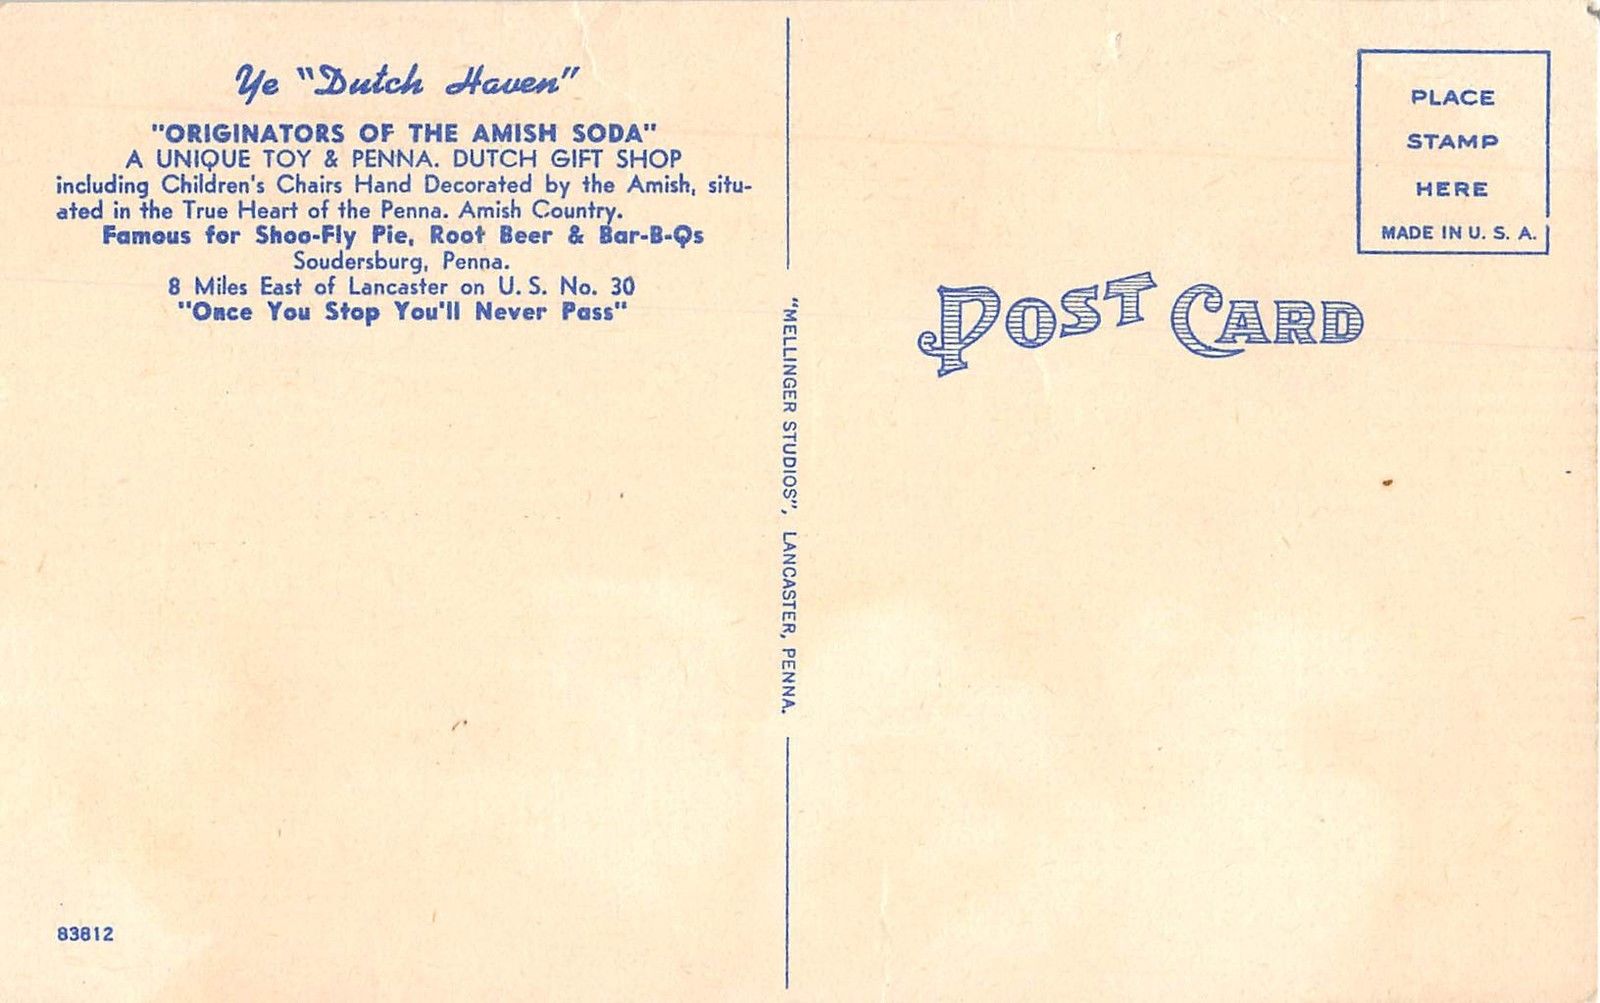 Ye "Dutch Haven"
"ORIGINATORS OF THE AMISH SODA"
A UNIQUE TOY & PENNA. DUTCH GIFT SHOP
including Children's Chairs Hand Decorated by the Amish, situ-
ated in the True Heart of the Penna. Amish Country.
Famous for Shoo-Fly Pie, Root Beer & Bar-B-Qs
Soudersburg, Penna.
8 Miles East of Lancaster on U. S. No. 30
"Once You Stop You'll Never Pass"
83812
"MELLINGER STUDIOS", LANCASTER, PENNA.
PLACE
STAMP
HERE
MADE IN U. S. A.
POST CARD